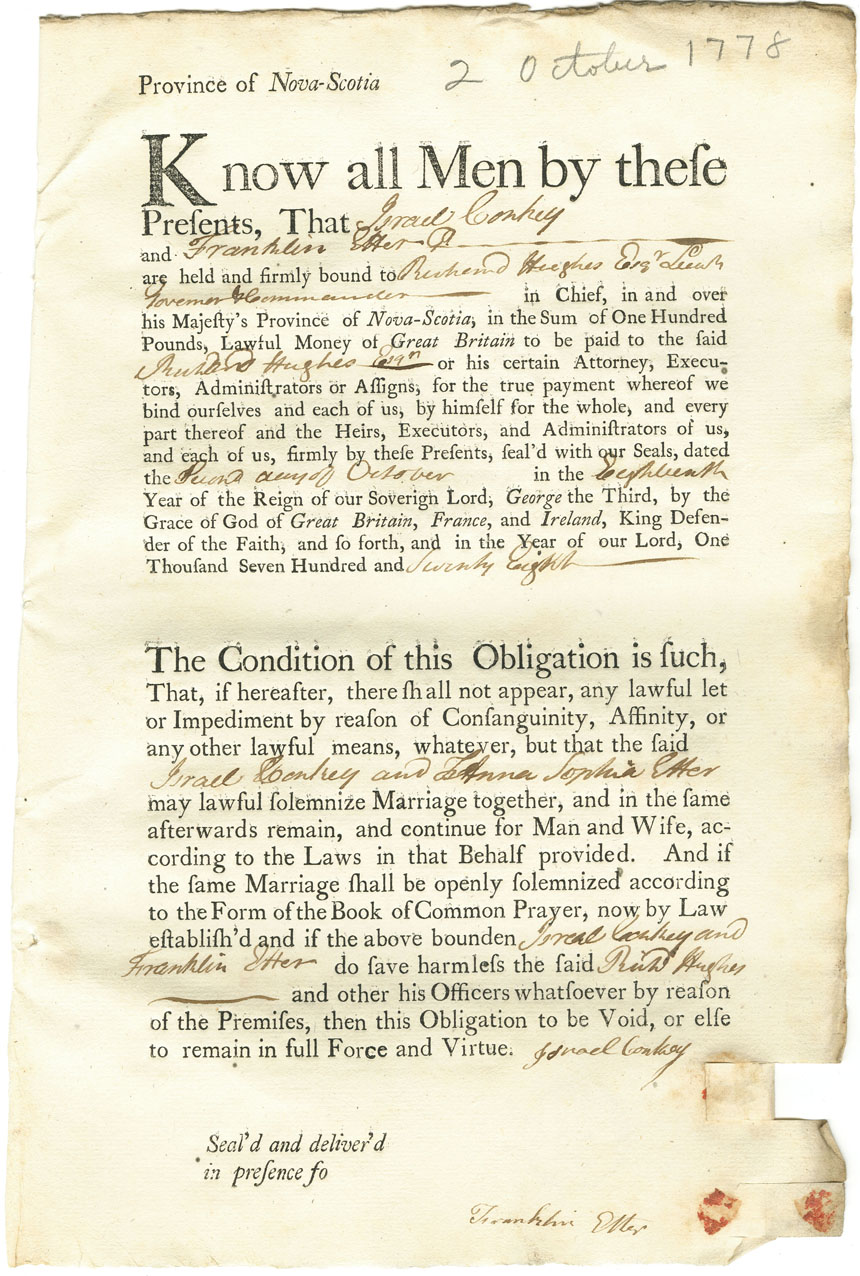 2 October 1778
Province of Nova-Scotia
Know all Men by theſe
Preſents, That Israel Conkey
and Franklin Etter
are held and firmly bound to Richard Hughes Esqr Lieut
Governor & Commander in Chief, in and over
his Majeſty's Province of Nova-Scotia, in the Sum of One Hundred
Pounds, Lawful Money of Great Britain to be paid to the ſaid
Richard Hughes Esqr or his certain Attorney, Execu-
tors, Adminiſtrators or Aſſigns, for the true payment whereof we
bind ourſelves and each of us, by himſelf for the whole, and every
part thereof and the Heirs, Executors, and Adminiſtrators of us,
and each of us, firmly by theſe Preſents, ſeal'd with our Seals, dated
the Second day of October in the Eighteenth
Year of the Reign of our Soverign Lord, George the Third, by the
Grace of God of Great Britain, France, and Ireland, King Defen-
der of the Faith, and ſo forth, and in the Year of our Lord, One
Thouſand Seven Hundred and Seventy Eight
The Condition of this Obligation is ſuch,
That, if hereafter, there ſhall not appear, any lawful let
or Impediment by reaſon of Conſanguinity, Affinity, or
any other lawful means, whatever, but that the ſaid
Israel Conkey and Anna Sophia Etter
may lawful ſolemnize Marriage together, and in the ſame
afterwards remain, and continue for Man and Wife, ac-
cording to the Laws in that Behalf provided. And if
the ſame Marriage ſhall be openly ſolemnized according
to the Form of the Book of Common Prayer, now by Law
eſtabliſh'd and if the above bounden Isreal Conkey and
Franklin Etter do ſave harmleſs the ſaid Richd Hughes
and other his Officers whatſoever by reaſon
of the Premiſes, then this Obligation to be Void, or elſe
to remain in full Force and Virtue.
Israel Conkey
Seal'd and deliver'd
in preſence fo
Franklin Etter